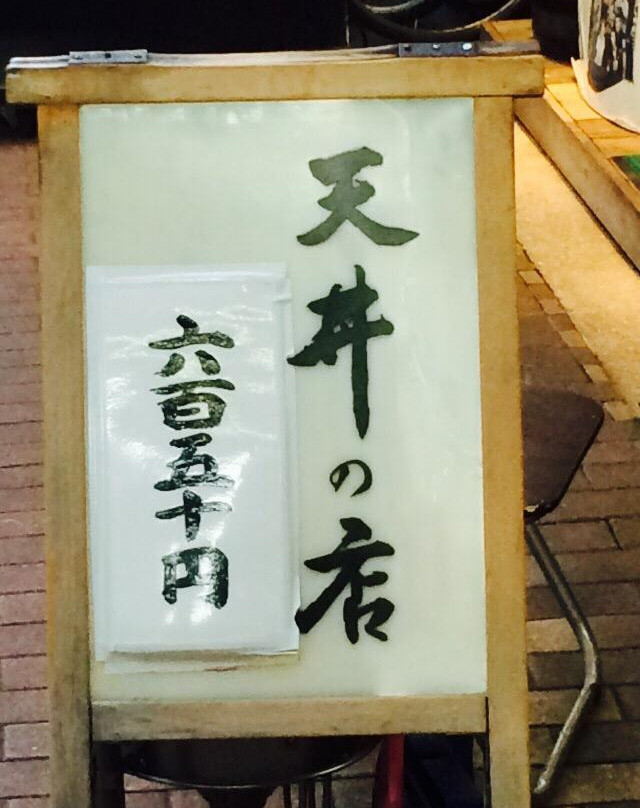 天丼の店
六百五十円